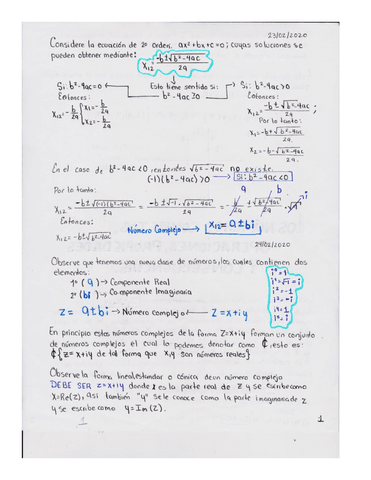 23/02/2020
Considere la ecuación de 2º orden, ax²+bx+c=0; cuyas soluciones se
pueden obtener mediante: X₁₂ = -b±√b²-4ac / 2a
Si: b²-4ac=0 ← Esto tiene sentido si: → Si: b²-4ac>0
Entonces: b²-4ac≥0 Entonces:
X₁₂=-b/2a { X₁=-b/2a X₂=-b/2a X₁₂=-b±√b²-4ac / 2a
Por lo tanto:
X₁=-b+√b²-4ac / 2a
X₂=-b-√b²-4ac / 2a
En el caso de b²-4ac<0 √b²-4ac no existe.
(-1)(b²-4ac)>0 Si: b²-4ac<0
Por lo tanto: a b
X₁₂= -b±√(-1)(b²-4ac) / 2a = -b±√-1 · √b²-4ac / 2a = -b/2a ± √b²-4ac / 2a · √-1 i
Entonces:
X₁₂= -b±√b²-4ac Número Complejo → X₁₂=a±bi
24/02/2020
Observe que tenemos una nueva clase de números, los cuales contienen dos
elementos:
1º (a) → Componente Real
2º (bi) → Componente Imaginaria
z = a±bi → Número complejo → z=x+iy
i⁰=1
i¹=√-1=i
i²=-1
i³=-i
i⁴=1
En principio estos números complejos de la forma Z=x+iy forman un conjunto
de números complejos el cual lo podemos denotar como ₵, esto es:
₵{z=x+iy de tal forma que x,y son números reales}
Observe la forma lineal estandar o cónica de un número complejo
DEBE SER z=x+iy donde x es la parte real de z y se escribe como
X=Re(z), así también "y" se le conoce como la parte imaginaria de z
y se escribe como y=Im(z).
1 1